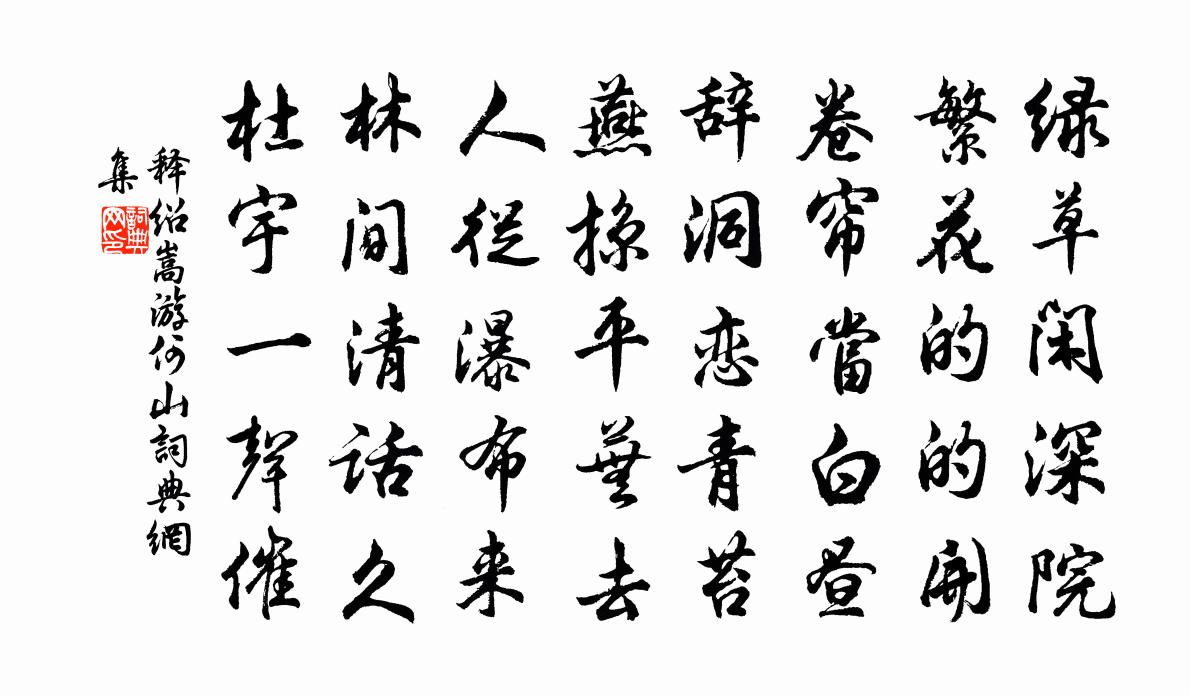 绿草闲深院
繁花的的开
卷帘當白昼
辞洞恋青苔
燕掠平芜去
人從瀑布来
林间清话久
杜宇一聲催
释绍嵩游何山詞典網
集
詞典
网印